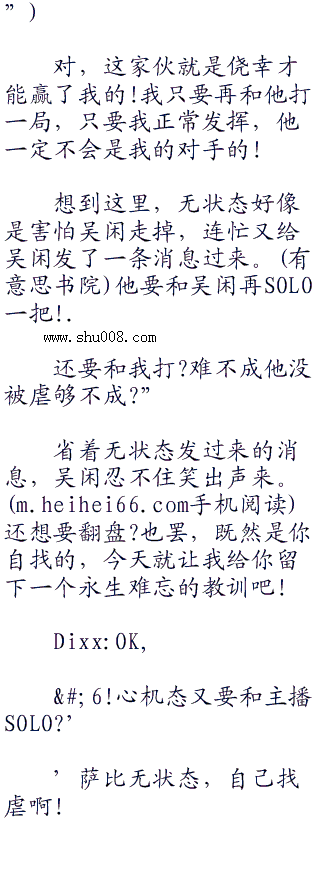 ”)
对，这家伙就是侥幸才
能赢了我的!我只要再和他打
一局，只要我正常发挥，他
一定不会是我的对手的!
想到这里，无状态好像
是害怕吴闲走掉，连忙又给
吴闲发了一条消息过来。(有
意思书院)他要和吴闲再SOLO
一把!.
www.shu008.com
还要和我打?难不成他没
被虐够不成?”
省着无状态发过来的消
息，吴闲忍不住笑出声来。
(m.heihei66.com手机阅读)
还想要翻盘?也罢，既然是你
自找的，今天就让我给你留
下一个永生难忘的教训吧!
Dixx:OK,
&#; 6!心机态又要和主播
SOLO?’
’萨比无状态，自己找
虐啊!